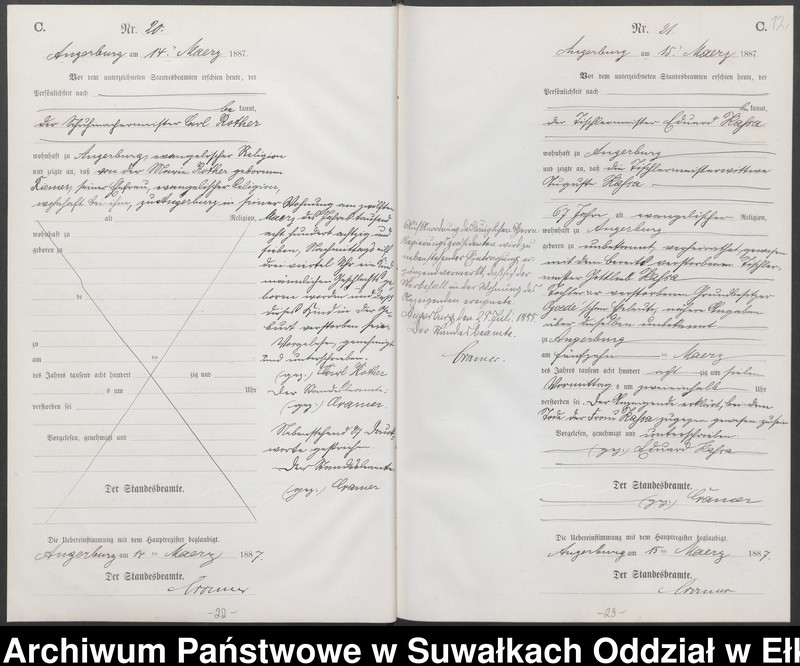 C.
Nr. 20.
Angerburg am 14. Maerz 1887.
Vor dem unterzeichneten Standesbeamten erschien heute, der
Persönlichkeit nach
be kannt,
der Schuhmachermeister Carl Rother
wohnhaft zu Angerburg, evangelischer Religion
und zeigte an, daß von der Maria Rother geborenen
Riemer, seiner Ehefrau, evangelischer Religion,
wohnhaft bei ihm, zu Angerburg in seiner Wohnung am zwölften
alt Religion,
wohnhaft zu
geboren zu
de
zu
am ten
des Jahres tausend acht hundert zig und
s um Uhr
verstorben sei
Vorgelesen, genehmigt und
Maerz des Jahres tausend
acht hundert achtzig und
sieben, Nachmittags elf
drei viertel Uhr ein Kind
maennlichen Geschlechts ge-
boren worden und daß
dieses Kind in der Ge-
burt verstorben sei.
Vorgelesen, genehmigt
und unterschrieben.
(gez.) Carl Rother
Der Standesbeamte.
(gez.) Cramer
Nebenstehend 27 Druck-
worte gestrichen.
Der Standesbeamte
(gez.) Cramer
Der Standesbeamte.
Die Uebereinstimmung mit dem Hauptregister beglaubigt.
Angerburg am 14 ten Maerz 1887.
Der Standesbeamte.
Cramer
-22-
C. 12
Nr. 21.
Angerburg am 15. Maerz 1887
Vor dem unterzeichneten Standesbeamten erschien heute, der
Persönlichkeit nach
be kannt,
der Tischlermeister Eduard Kassra
wohnhaft zu Angerburg
und zeigte an, daß die Tischlermeisterwittwe
Auguste Kassra
67 Jahre alt evangelischer Religion,
wohnhaft zu Angerburg
geboren zu unbekannt, verheirathet gewesen
mit dem bereits verstorbenen Tischler-
meister Gottlieb Kassra
Tochter der verstorbenen Grundbesitzer
Goede'schen Eheleute, nähere Angaben
über dieselben unbekannt
zu Angerburg
am fünfzehn ten Maerz
des Jahres tausend acht hundert acht zig und sieben
Vormittag s um zweieinhalb Uhr
verstorben sei. Der Anzeigende erklärt, bei dem
Tode der Frau Kassra zugegen gewesen zu sein
Vorgelesen, genehmigt und unterschrieben
(gez.) Eduard Kassra
Der Standesbeamte.
(gez.) Cramer
Auf Anordnung des Königlichen Herrn
Regierungspräsidenten wird zu
nebenstehender Eintragung er-
gänzend vermerkt, daß sich der
Sterbefall in der Wohnung des
Anzeigenden ereignete.
Angerburg, den 25. Juli 1888
Der Standesbeamte.
Cramer.
Die Uebereinstimmung mit dem Hauptregister beglaubigt.
Angerburg am 15 ten Maerz 1887.
Der Standesbeamte.
Cramer
-23-
Archiwum Państwowe w Suwałkach Oddział w Eł